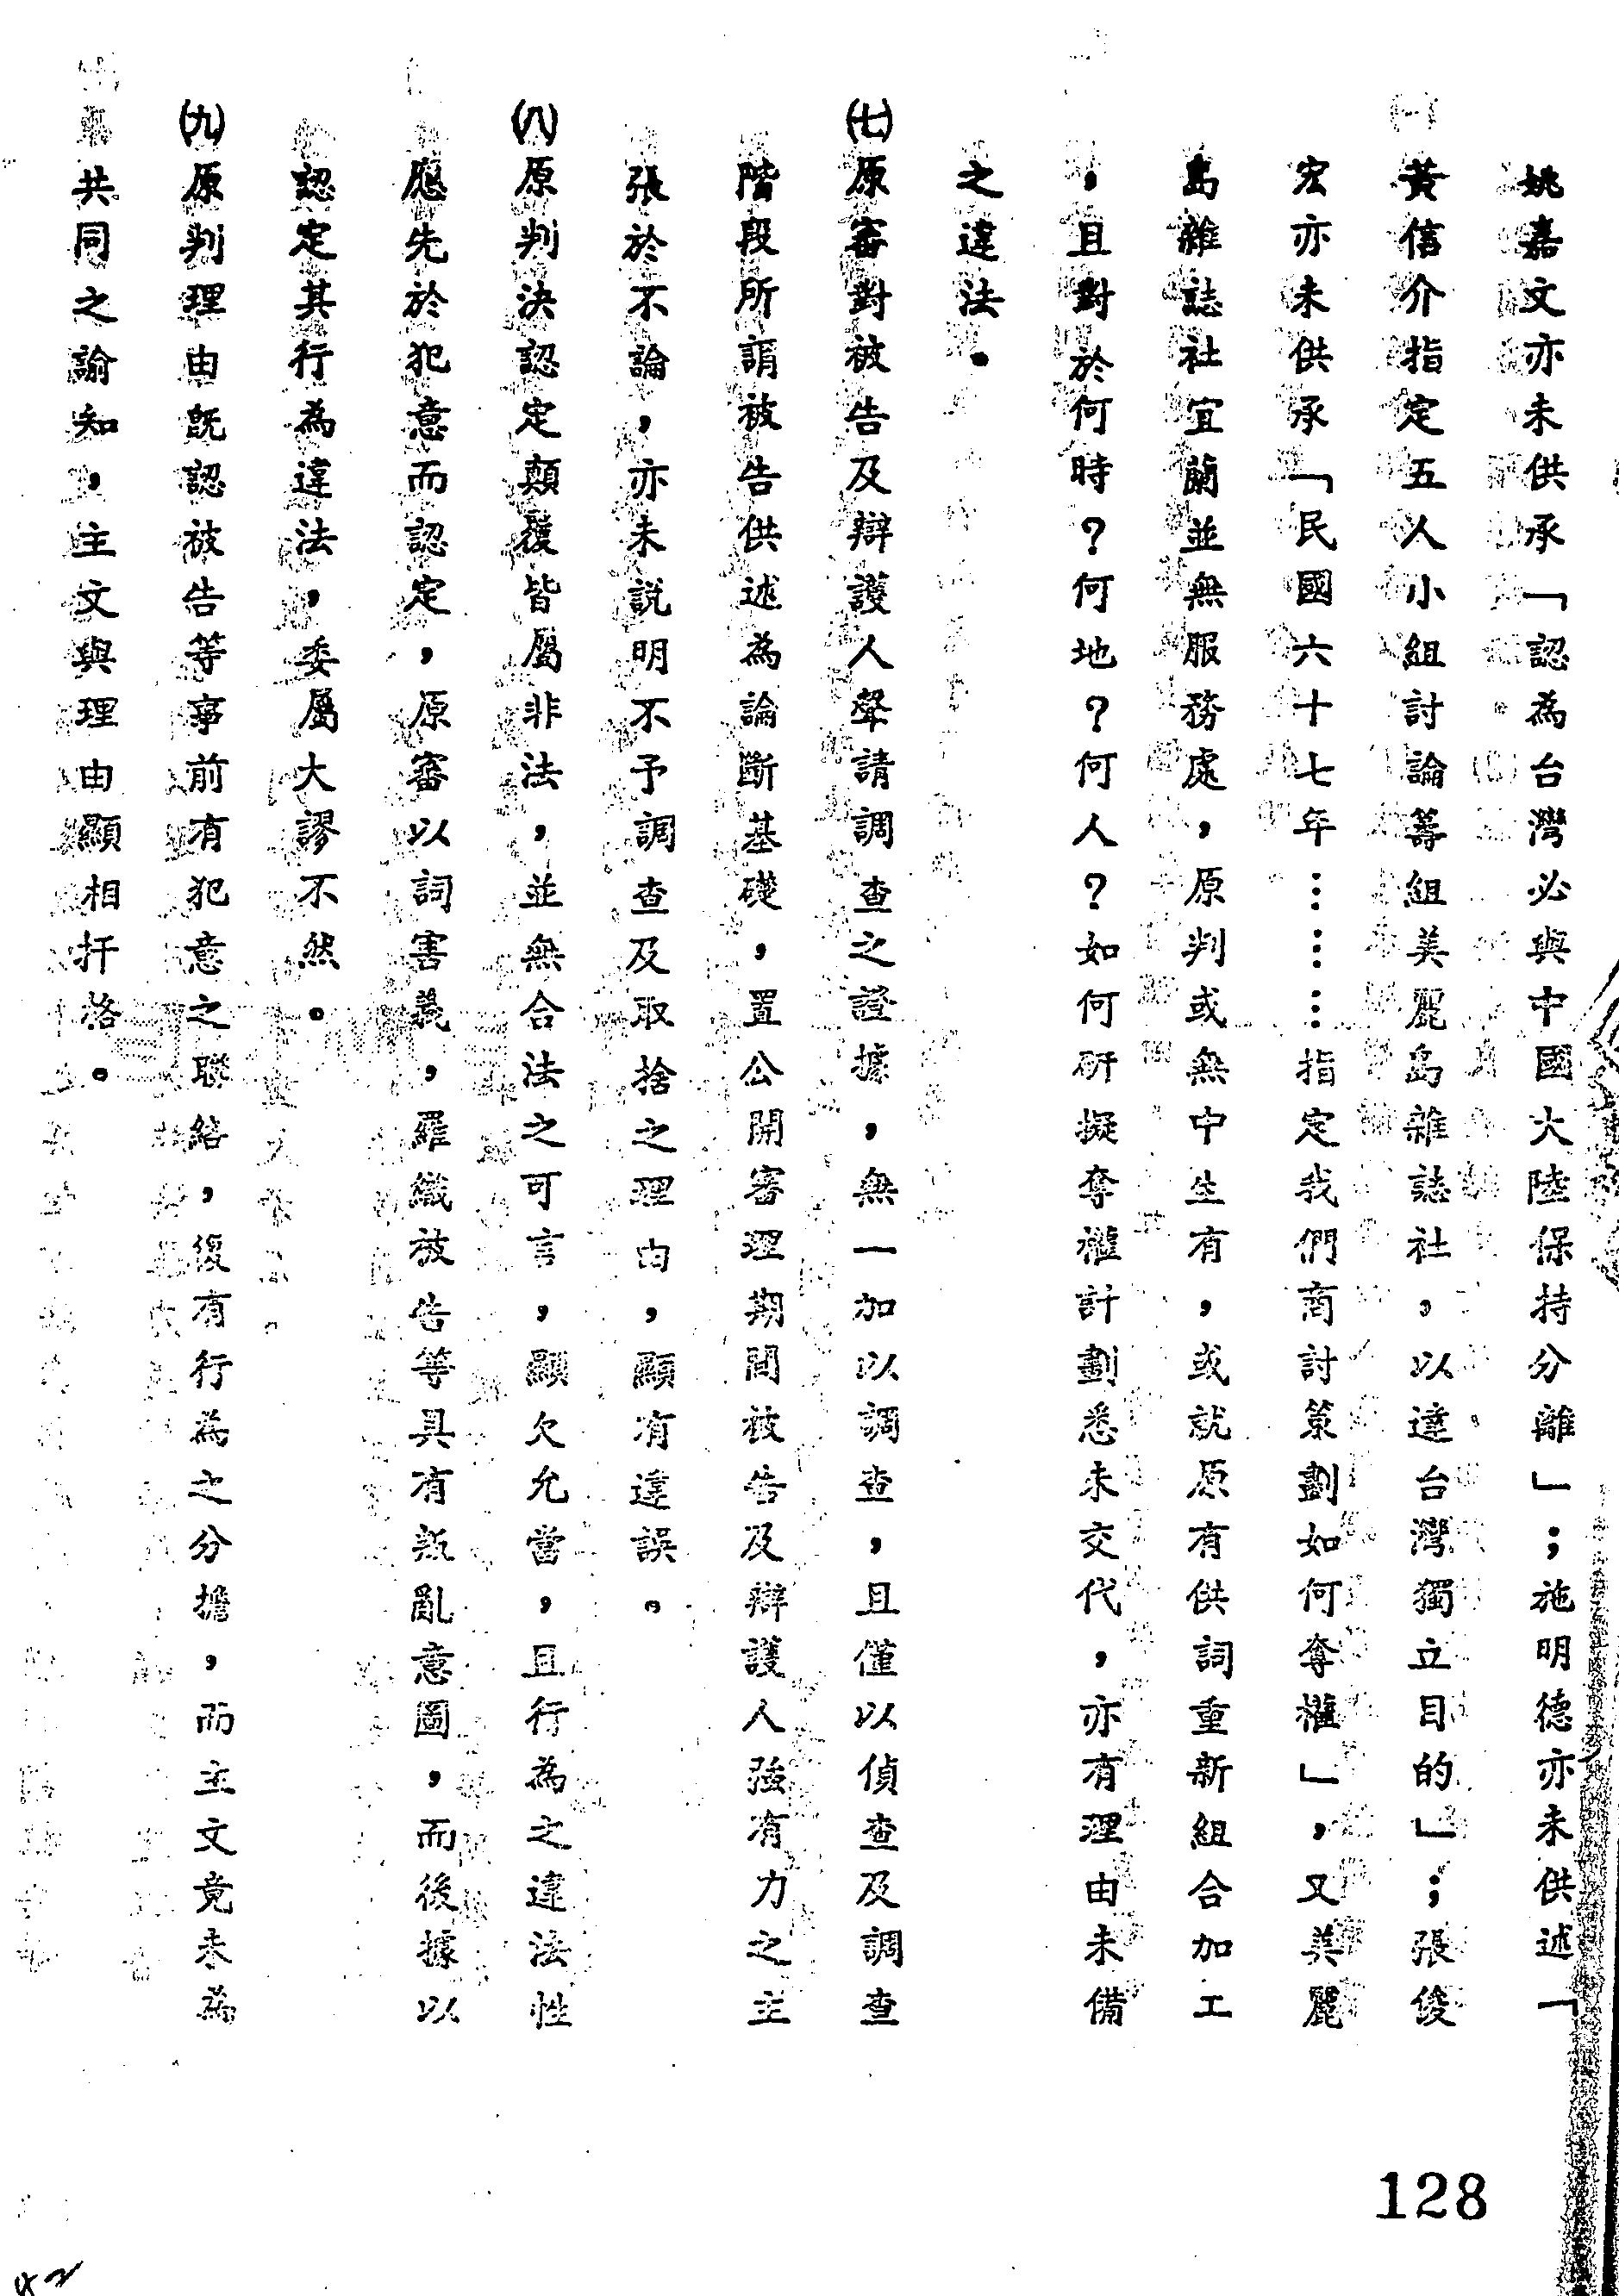 姚嘉文亦未供承「認為台灣必與中國大陸保持分離」；施明德亦未供述「
黃信介指定五人小組討論籌組美麗島雜誌社，以達台灣獨立目的」；張俊
宏亦未供承「民國六十七年………指定我們商討策劃如何奪權」，又美麗
島雜誌社宜蘭並無服務處，原判或無中生有，或就原有供詞重新組合加工
，且對於何時？何地？何人？如何研擬奪權計劃悉未交代，亦有理由未備
之違法。
(七)原審對被告及辯護人聲請調查之證據，無一加以調查，且僅以偵查及調查
階段所謂被告供述為論斷基礎，置公開審理期間被告及辯護人強有力之主
張於不論，亦未說明不予調查及取捨之理由，顯有違誤。
(八)原判決認定顛覆皆屬非法，並無合法之可言，顯欠允當，且行為之違法性
應先於犯意而認定，原審以詞害義，羅織被告等具有叛亂意圖，而後據以
認定其行為違法，委屬大謬不然。
(九)原判理由既認被告等事前有犯意之聯絡，復有行為之分擔，而主文竟未為
共同之諭知，主文與理由顯相扞格。
128